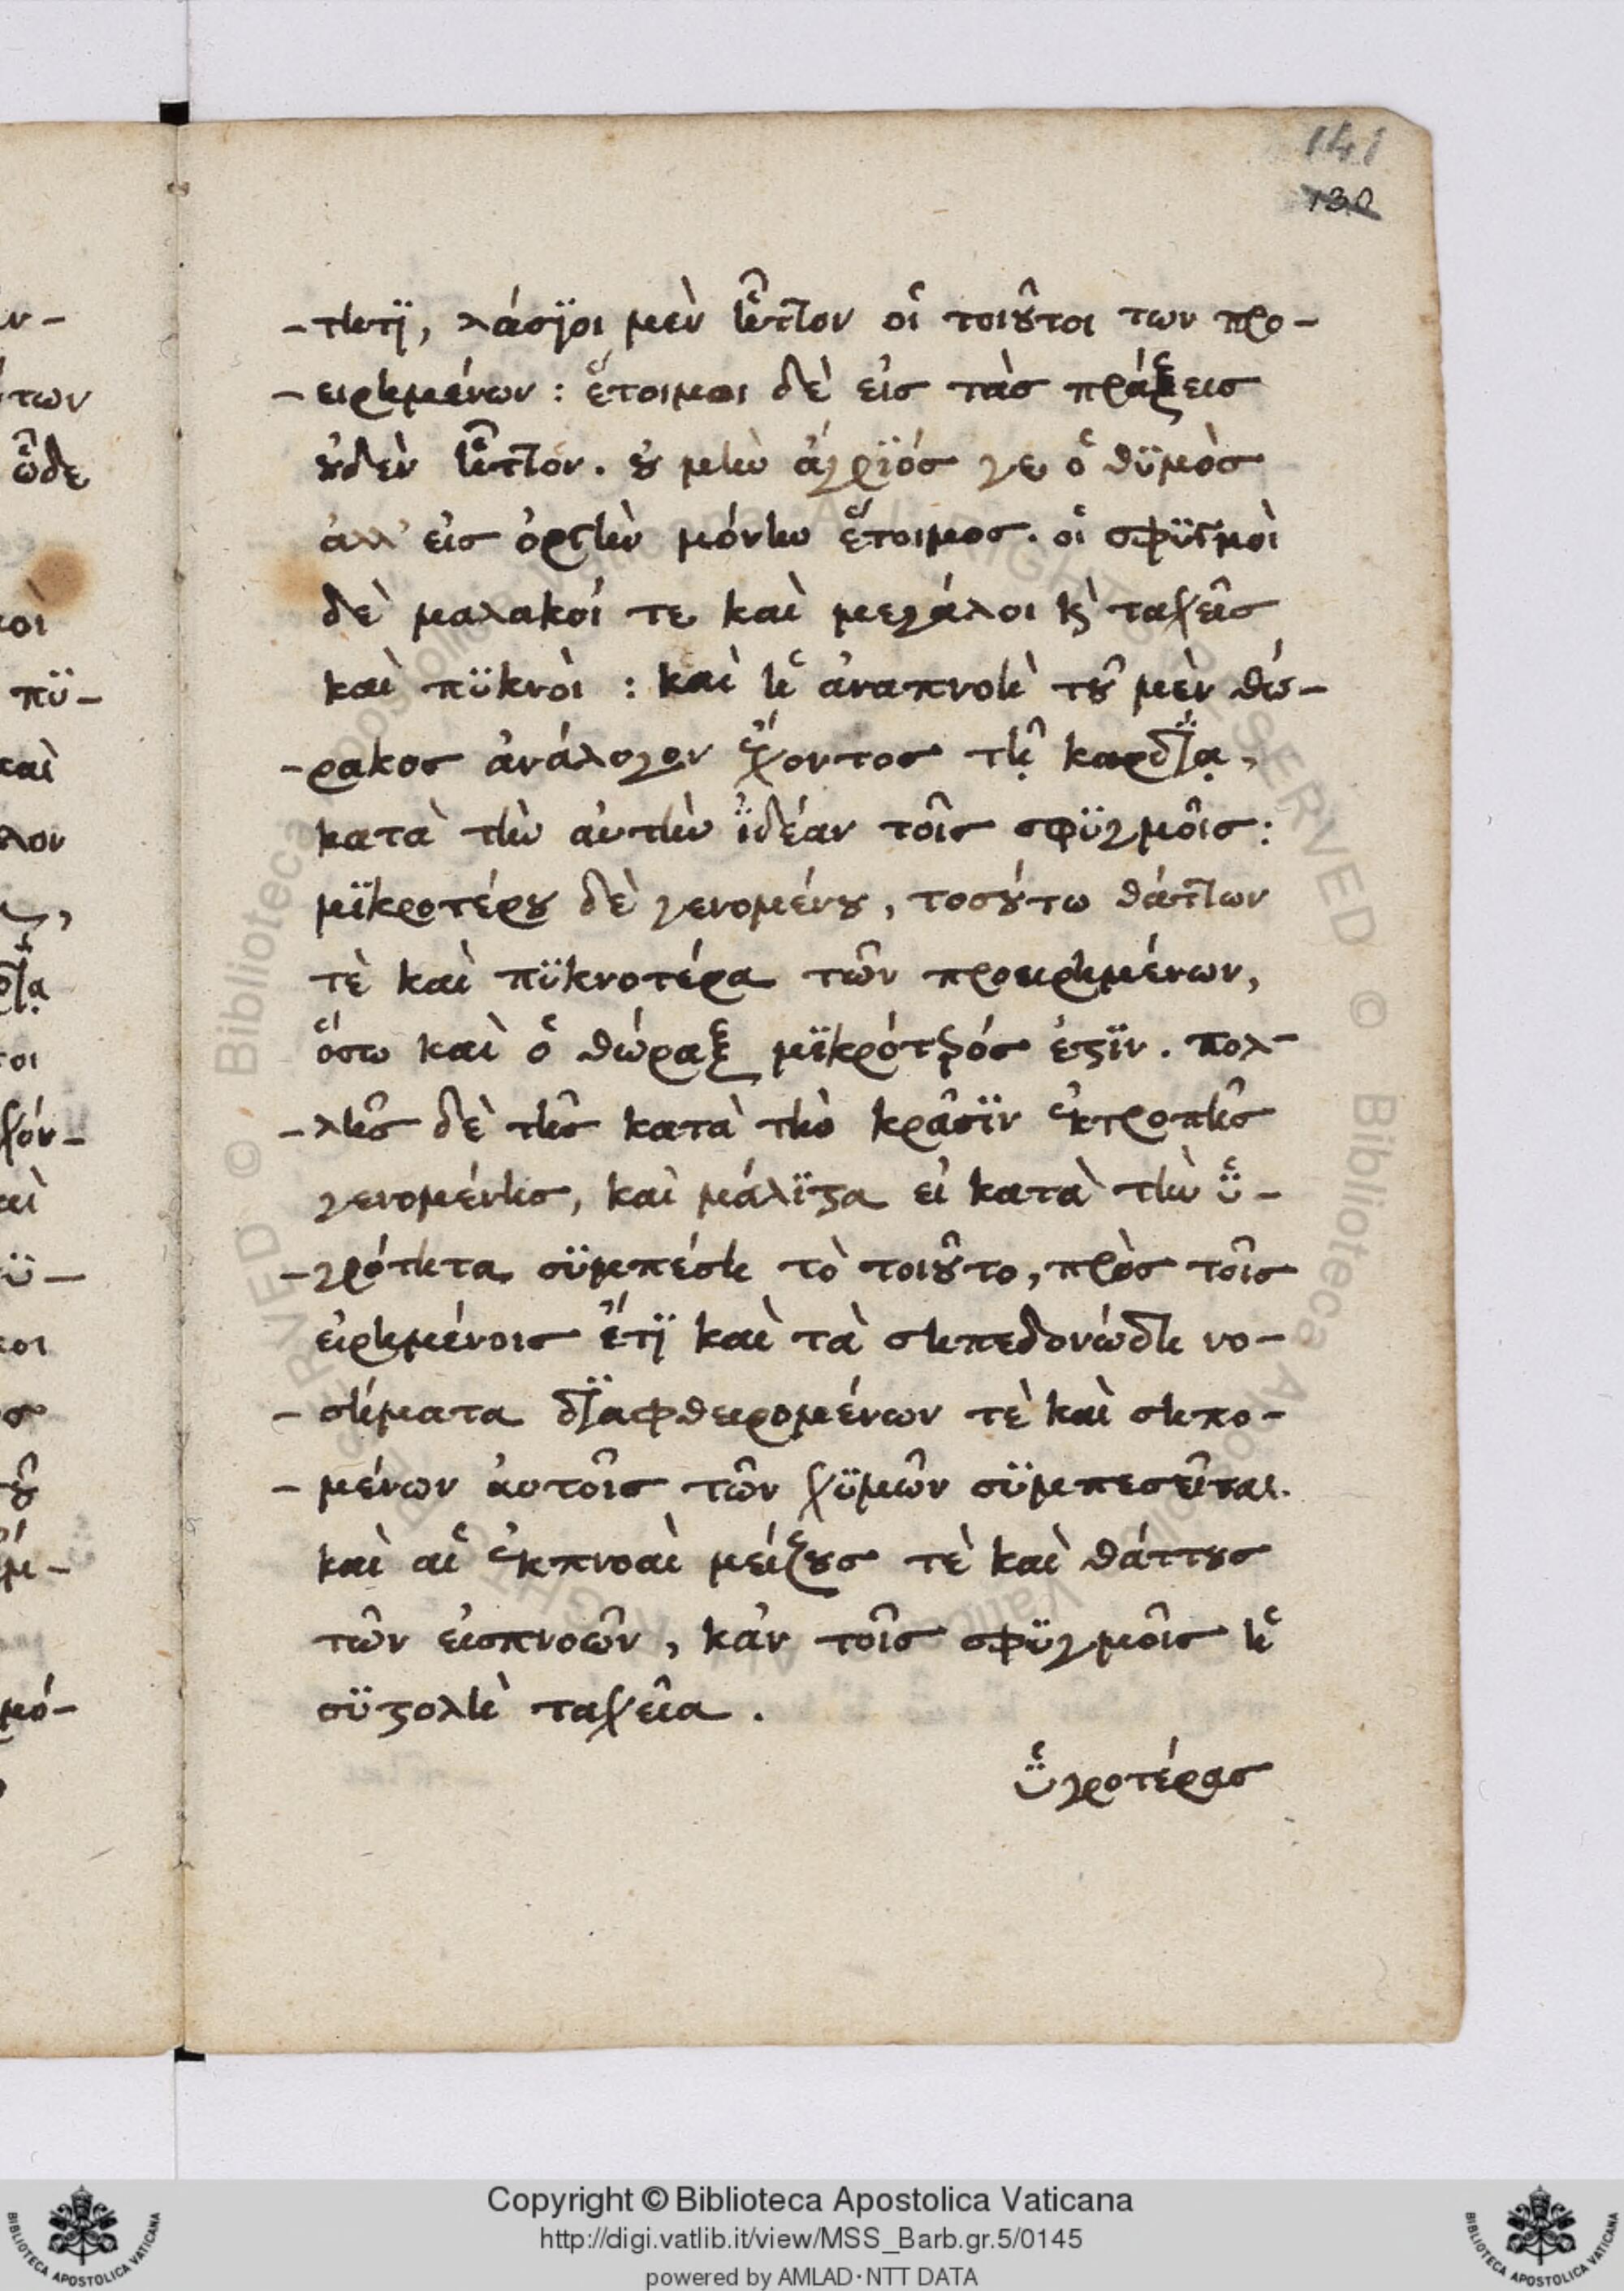 141
130
-τητϊ, λάσϊοι μὲν ἧττον οἱ τοιοῦτοι των προ-
-ειρημένων : ἕτοιμοι δὲ εἰς τὰς πράξεις
οὐδὲν ἧττόν. οὐ μὴν ἄγρϊός γε ὁ θϋμὸς
ἀλλ' εἰς ὀργὴν μόνην ἕτοιμος. οἱ σφϋγμοὶ
δὲ μαλακοί τε καὶ μεγάλοι κ̀ ταχεῖς
καὶ πϋκνοὶ : καὶ ἡ ἀναπνοὴ τοῦ μὲν θώ-
-ρακος ἀνάλογον ἔχοντος τῇ καρδΐᾳ,
κατὰ τὴν αὐτὴν ἰδέαν τοῖς σφϋγμοῖς :
μϊκροτέρου δὲ γενομένου, τοσούτω θάττων
τὲ καὶ πϋκνοτέρα τῶν προειρημένων,
ὅσω καὶ ὁ θώραξ μϊκρότερός ἐστϊν. πολ-
-λῆς δὲ τῆς κατὰ τὴν κρᾶσϊν ἐκτροπῆς
γενομένης, καὶ μάλϊστα εἰ κατὰ τὴν ὑ-
-γρότητα σϋμπέση τὸ τοιοῦτο, πρὸς τοῖς
εἰρημένοις ἔτϊ καὶ τὰ σηπεδονώδη νο-
-σήματα δϊαφθειρομένων τὲ καὶ σηπο-
-μένων αὐτοῖς τῶν χϋμῶν σϋμπεσεῖται.
καὶ αἱ ἐκπνοαὶ μείζους τὲ καὶ θάττους
τῶν εἰσπνοῶν, κἀν τοῖς σφϋγμοῖς ἡ
σϋστολὴ ταχεῖα .
ὑγροτέρας
Copyright © Biblioteca Apostolica Vaticana
http://digi.vatlib.it/view/MSS_Barb.gr.5/0145
powered by AMLAD·NTT DATA